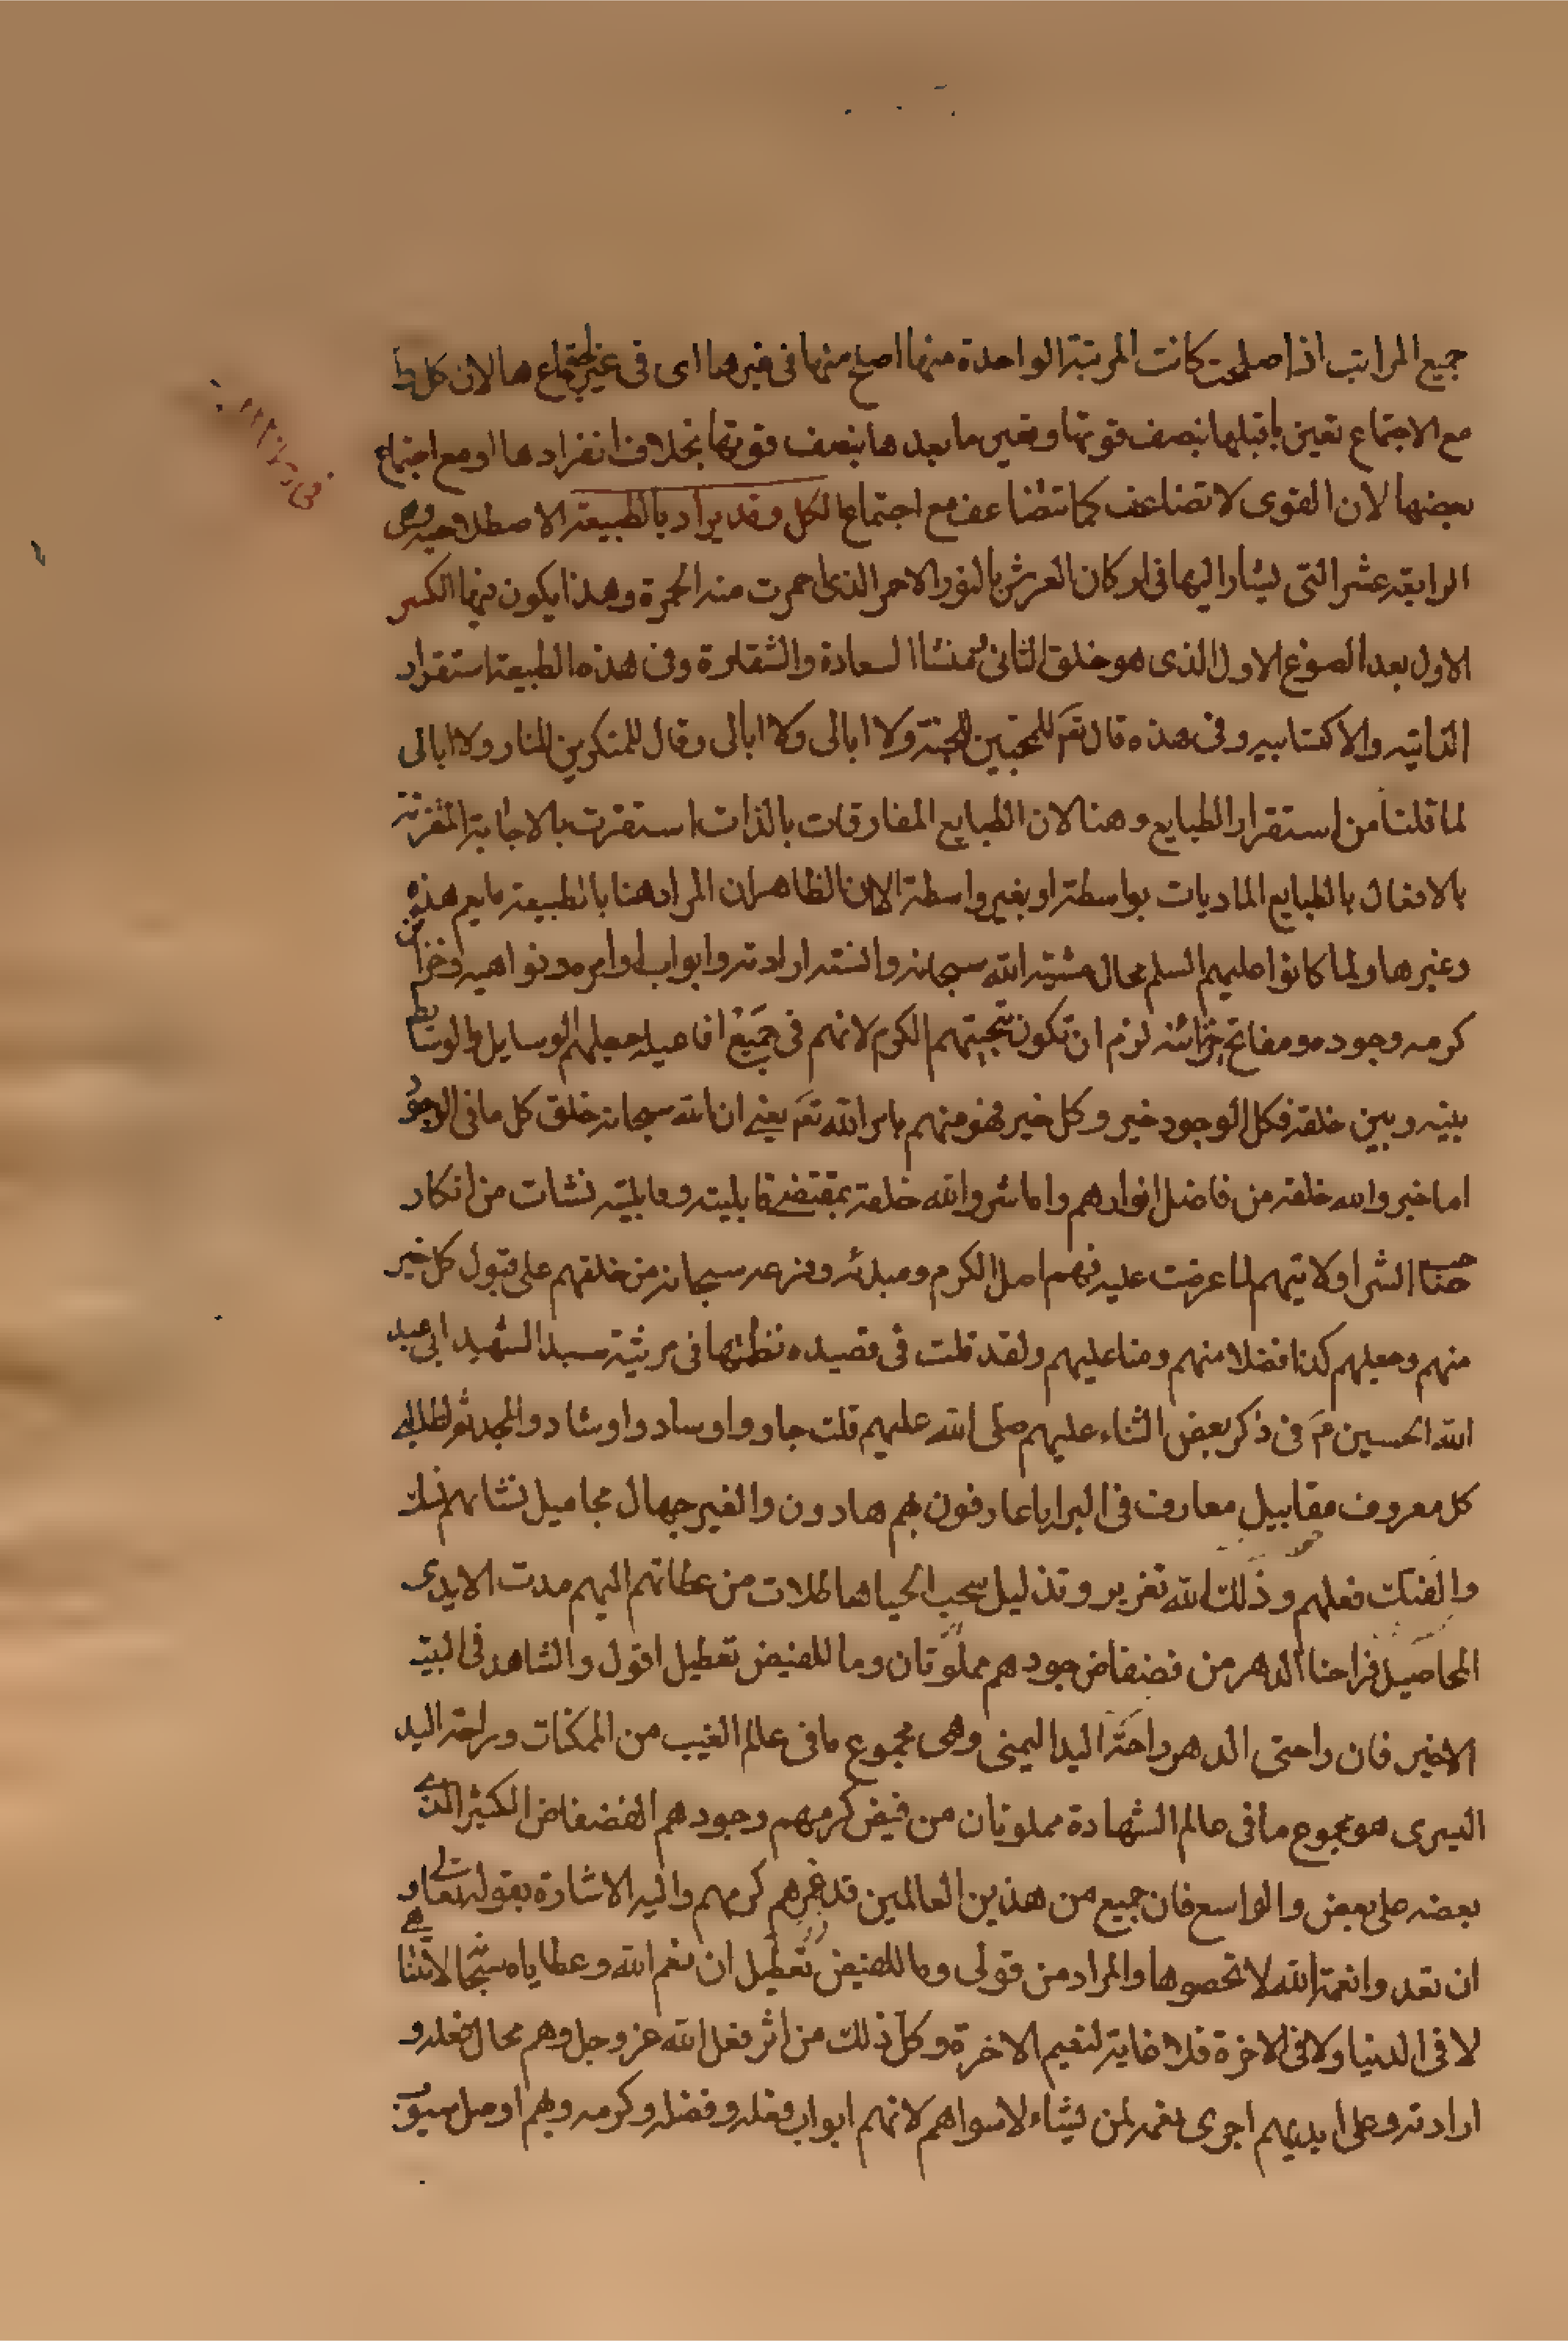 جميع المراتب اذا صلحت كانت المرتبة الواحدة منها اصلح منها فى غيرها اى فى غير اجتماعها لان كل
مع الاجتماع تعين ما قبلها بنصف قوتها وتعين ما بعدها بنصف قوتها بخلاف انفرادها او مع اجتماع
بعضها لان القوى لا تضاعف كما تتضاعف مع اجتماع الكل وقد يراد بالطبيعة الاصطلاحية وهى
الرابعة عشر التى يشار اليها فى اركان العرش بالنور الاحمر الذى احمرت منه الحمرة وهذا يكون فيها الكسر
الاول بعد الصوغ الاول الذى هو خلق الثانى ثم منشا السعادة والشقاوة وفى هذه الطبيعة استقرار
الذاتيه والاكتسابيه وفى هذه قال تع للمحبين للجنة ولا ابالى ولا ابالى وقال للمنكرين للنار ولا ابالى
لما قلنا من استقرار الطبايع وهنا لان الطبايع المفارقات بالذات استقرت بالاجابة المقترنة
بالافعال بالطبايع الماديات بواسطة او بغير واسطة الا ان الظاهر ان المراد هنا بالطبيعة ما يعم هذه
وغيرها ولما كانوا عليهم السلم محال مشيته الله سبحانه والسنة ارادته وابواب اوامره ونواهيه وخزائن
كرمه وجوده ومفاتح خزائنه لزم ان تكون سجيتهم الكرم لانهم فى جميع افاعيله جعلهم الوسايل والوسائط
بينه وبين خلقه فكل الوجود خير وكل خير فهو منهم بامر الله تع يعنى ان الله سبحانه خلق كل ما فى الوجود
اما خير والله خلقه من فاضل انوارهم واما شر والله خلقه بمقتضى قابليته وقابليته نشات من انكار
صاحب الشر اولايتهم لما عرضت عليه فهم اصل الكرم ومبدئه وفرعه سبحانه من خلقهم على قبول كل خير
منهم وجعلهم كدنا فضلا منهم ومنا عليهم ولقد قلت فى قصيده نظمتها فى مرثية سيد الشهيد ابى عبد
الله الحسين م فى ذكر بعض الثناء عليهم صلى الله عليهم قلت جادوا وسادوا وشادوا المجد ثم لطلاب
كل معروف مقابيل معارف فى البرايا عارفون بهم هادون والغير جهال مجاهيل نشاتهم نسك
والفتك فعلهم وذلك لله تعزير وتذليل سحب الحيا هاطلات من عطائهم اليهم مدت الايدى
المحاصيل فراحنا الدهر من فضفاض جودهم مملوتان وما للفيض تعطيل اقول والشاهد فى البيت
الاخير فان راحتى الدهر راحة اليد اليمنى وهى مجموع ما فى عالم الغيب من الممكنات وراحة اليد
اليسرى هو مجموع ما فى عالم الشهادة مملوتان من فيض كرمهم وجودهم الفضفاض الكثير الذى
بعضه على بعض والواسع فان جميع من هذين العالمين قد غمرهم كرمهم واليه الاشارة بقوله تعالى و
ان تعدوا نعمة الله لا تحصوها والمراد من قولى وما للفيض تعطيل ان نعم الله وعطاياه سبحانه لا تتناهى
لا فى الدنيا ولا فى الاخرة فلا غاية لنعيم الاخرة وكل ذلك من اثر فعل الله عز وجل وهم محال فعله و
ارادته وعلى ايديهم اجرى نعمه لمن يشاء لا سواهم لانهم ابواب فعله وفضله وكرمه وبهم اوصل